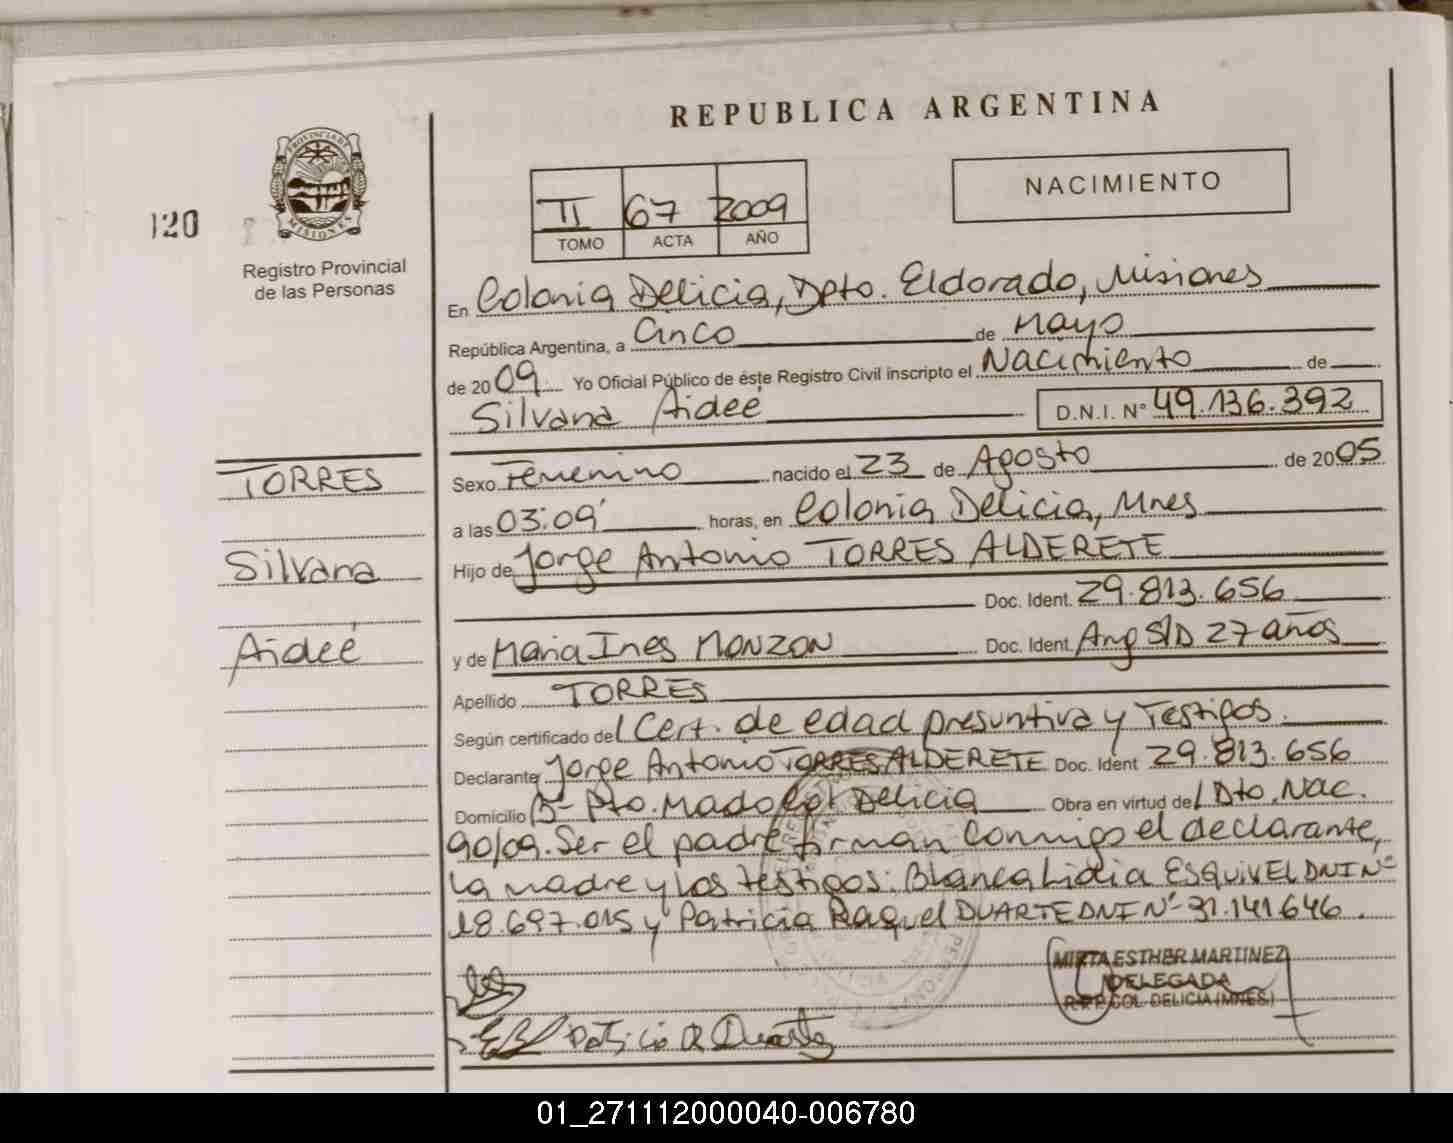 REPUBLICA ARGENTINA
PROVINCIA DE
MISIONES
120
Registro Provincial
de las Personas
II 67 2009
TOMO ACTA AÑO
NACIMIENTO
En Colonia Delicia, Dpto. Eldorado, Misiones
República Argentina, a Cinco de Mayo
de 20 09 Yo Oficial Público de éste Registro Civil inscripto el Nacimiento de
Silvana Aideé D.N.I. N° 49.136.392
TORRES
Silvana
Aideé
Sexo Femenino nacido el 23 de Agosto de 20 05
a las 03:09' horas, en Colonia Delicia, Mnes
Hijo de Jorge Antonio TORRES ALDERETE
Doc. Ident. 29.813.656
y de Maria Ines MONZON Doc. Ident. Arg S/D 27 años
Apellido TORRES
Según certificado del Cert. de edad presuntiva y Testigos.
Declarante Jorge Antonio TORRES ALDERETE Doc. Ident 29.813.656
Domicilio B- Pto. Mado Col Delicia Obra en virtud de l Dto. Nac.
90/09. Ser el padre firman conmigo el declarante,
la madre y los testigos: Blanca Lidia ESQUIVEL DNI N°
18.697.015 y Patricia Raquel DUARTE DNI N° 31.141.646.
MIRTA ESTHER MARTINEZ
DELEGADA
R.P.P. COL. DELICIA (MNES.)
Patricia R Duarte
01_271112000040-006780